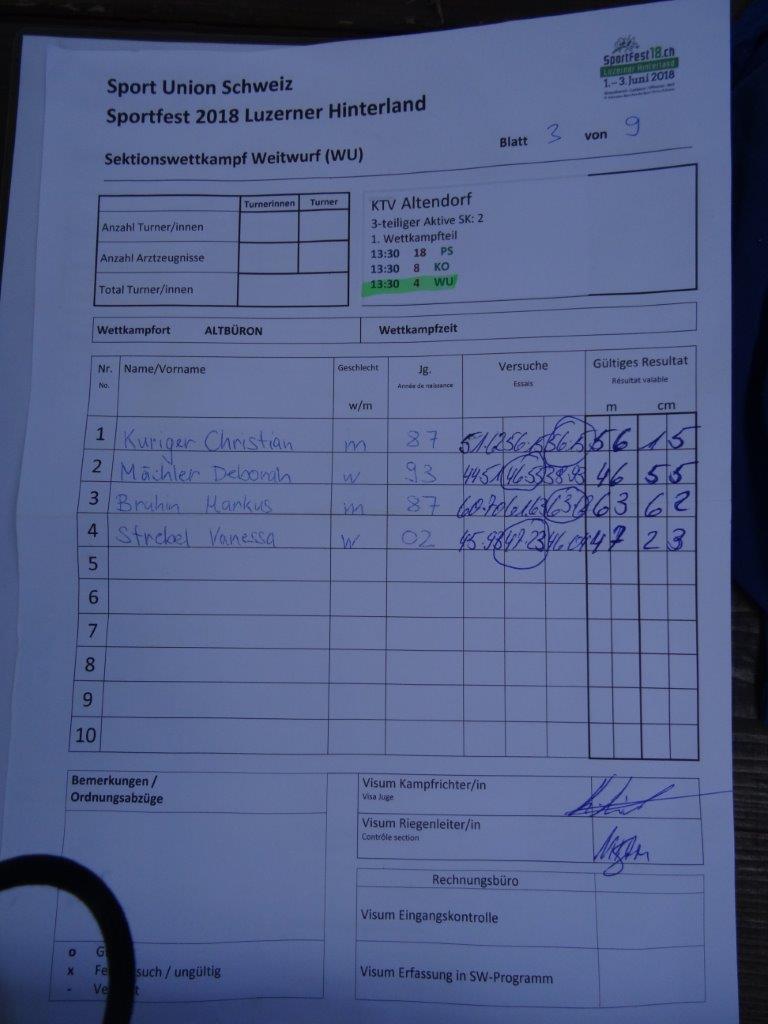 SportFest18.ch
Luzerner Hinterland
1.–3. Juni 2018
Sport Union Schweiz
Sportfest 2018 Luzerner Hinterland
Sektionswettkampf Weitwurf (WU)
Blatt 3 von 9
Turnerinnen Turner
Anzahl Turner/innen
Anzahl Arztzeugnisse
Total Turner/innen
KTV Altendorf
3-teiliger Aktive SK: 2
1. Wettkampfteil
13:30 18 PS
13:30 8 KO
13:30 4 WU
Wettkampfort ALTBÜRON Wettkampfzeit
Nr. Name/Vorname Geschlecht Jg. Versuche Gültiges Resultat
No. Année de naissance Essais Résultat valable
w/m m cm
1 Kuriger Christian m 87 51.12 56.15 56 15
2 Mächler Deborah w 93 44.51 46.55 38.93 46 55
3 Bruhin Markus m 87 60.70 61.63 63.62 63 62
4 Strebel Vanessa w 02 45.98 47.23 46.04 47 23
5
6
7
8
9
10
Bemerkungen /
Ordnungsabzüge
Visum Kampfrichter/in
Visa Juge
Visum Riegenleiter/in
Contrôle section
Rechnungsbüro
Visum Eingangskontrolle
Visum Erfassung in SW-Programm
o G
x Fe such / ungültig
- Ve t